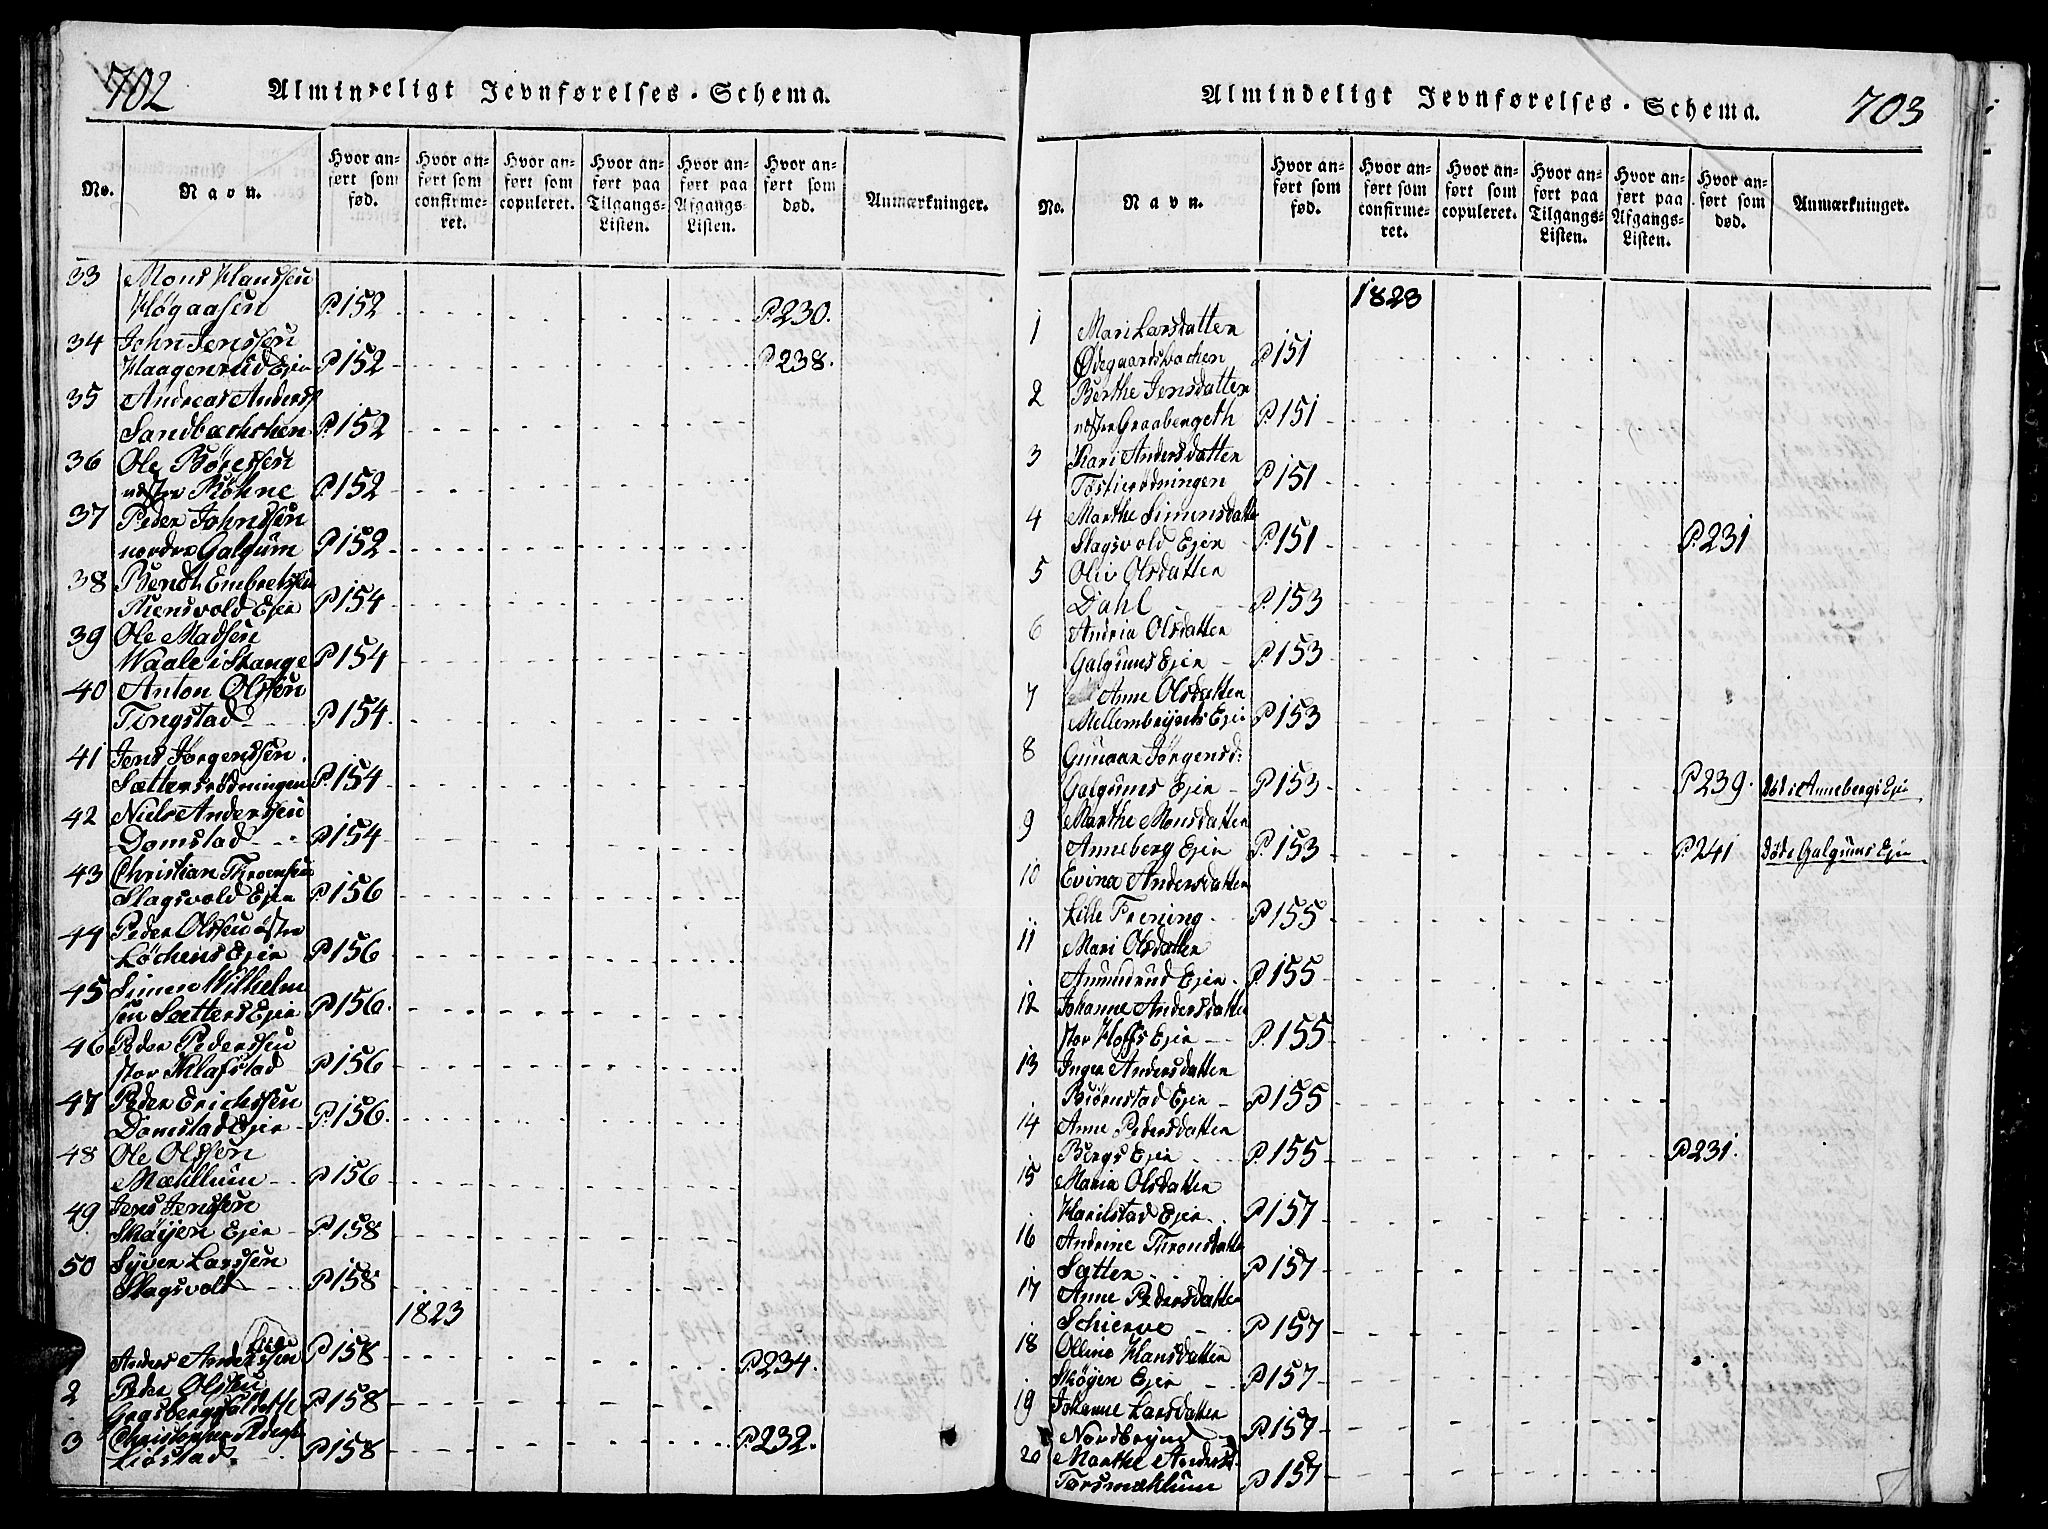 702
Almindeligt Jevnførelses-Schema.
No.
Navn.
Hvor anført som fød.
Hvor anført som confirmeret.
Hvor anført som copuleret.
Hvor anført paa Tilgangs-Listen.
Hvor anført paa Afgangs-Listen.
Hvor anført som død.
Anmærkninger.
33 Mons Hanssen
Høgaasen P.152 P.230.
34 John Jenssen
Haagenrud Ejer P.152 P.238.
35 Andreas Anders
Sandbachchen P.152
36 Ole Børessen
vestre Røhne P.152
37 Peder Johnssen
nordre Galgum P.152
38 Bendt Embretssen
Riensvold Ejer P.154
39 Ole Madsen
Waale i Stange P.154
40 Anton Olssen
Tingstad P.154
41 Jens Jørgenssen
Sættersrødningen P.154
42 Niels Anderssen
Domstad P.154
43 Christian Thronsen
Slagsvold Ejer P.156
44 Peder Olssen østre
Løchens Ejer P.156
45 Simen Wilhelm
sen Sætters Ejer P.156.
46 Peder Pederssen
stor Klafstad P.156
47 Peder Erichssen
Domstad Ejer P.156.
48 Ole Olssen
Mæhlum P.156
49 Jens Jenssen
Skøyen Ejer P.158
50 Syver Larssen
Slagsvold P.158
1823
1 Anders Anderssen P.158 P.234.
2 Peder Olssen
P.158
3 Christopher
Liøstad. P.158 P.232.
Almindeligt Jevnførelses-Schema.
703
No.
Navn.
Hvor anført som fød.
Hvor anført som confirmeret.
Hvor anført som copuleret.
Hvor anført paa Tilgangs-Listen.
Hvor anført paa Afgangs-Listen.
Hvor anført som død.
Anmærkninger.
1823
1 Mari Larsdatter
Ødegaardsbachen P.151
2 Berthe Jensdatter
vestre Graabergeth P.151
3 Kari Andersdatter
Tostierødningen P.151
4 Marthe Simensdatter
Slagsvold Ejer P.151 P.231
5 Oliv Olsdatter
Dahl P.153
6 Andria Olsdatter
Galgums Ejer P.153
7 Anne Olsdatter
Mellembyeds Ejer P.153
8 Gunaar Jørgensd:
Galgums Ejer P.153 P.239. Død i Annebergs Ejer
9 Marthe Monsdatter
Anneberg Ejer P.153 P.241 Døde Galgums Ejer
10 Evina Andersdatter
Lille Frening P.155
11 Mari Olsdatter
Amundrud Ejer P.155
12 Johanne Andersdatter
stor Hoffs Ejer P.155
13 Inger Andersdatter
Biørnstad Ejer P.155
14 Anne Pedersdatter
Bergs Ejer P.155 P.231.
15 Maria Olsdatter
Harilstad Ejer P.157
16 Andrine Thronsdatter
Sætter P.157
17 Anne Pedersdatter
Schierve P.157
18 Olline Hansdatter
Skøyen Ejer P.157
19 Johanne Larsdatter
Nordbrynd P.157
20 Marthe Andersd.
Torsmæhlum P.157